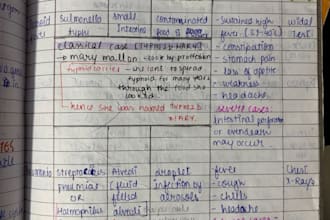 typhoid salmonella small contaminated - sustained high widal
typhi Intestine food & fever (39°-40°) Test
classical case (TYPHOID MARY) - constipation
→ mary mallon - cook by profession - stomach pain
typhoid carrier - she cont. to spread - loss of appetite
typhoid for many years - weakness
through the food she - headache
→ hence she was named TYPHOID severe cases:
MARY. Intestinal perforation
or even death may
may occur.
streptococcus Alveoli droplet fever Chest
pneumoniae (fluid infection by - cough X-Rays
OR filled aerosols - chills
Haemophilus alveoli) - headache